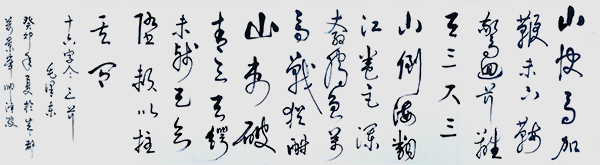 山快馬加
鞭未下鞍
驚迴首離
天三尺三
山倒海翻
江卷巨瀾
奔騰急萬
馬戰猶酣
山刺破
青天鍔
未殘天欲
墮賴以拄
其間
十六字令三首
毛澤東
癸卯年夏於